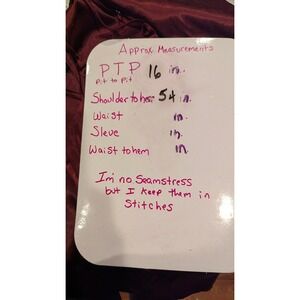 Approx Measurements
PTP 16 in.
Pit to Pit
Shoulder to hem 54 in.
Waist in.
Sleve in.
Waist to hem in
I'm no Seamstress
but I keep them in
Stitches